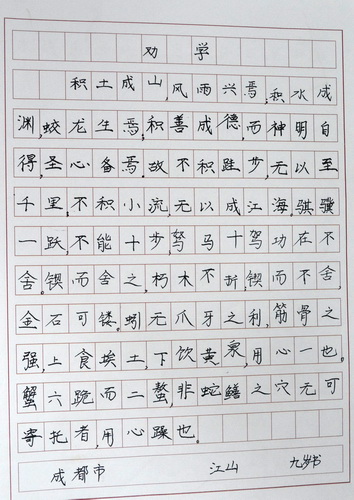 劝学
积土成山,风雨兴焉,积水成
渊,蛟龙生焉,积善成德,而神明自
得,圣心备焉。故不积跬步,无以至
千里,不积小流,无以成江海,骐骥
一跃,不能十步,驽马十驾功在不
舍。锲而舍之,朽木不折,锲而不舍,
金石可镂。蚓无爪牙之利,筋骨之
强,上食埃土,下饮黄泉,用心一也。
蟹六跪而二螯,非蛇鳝之穴无可
寄托者,用心躁也。
成都市 江山 九岁书